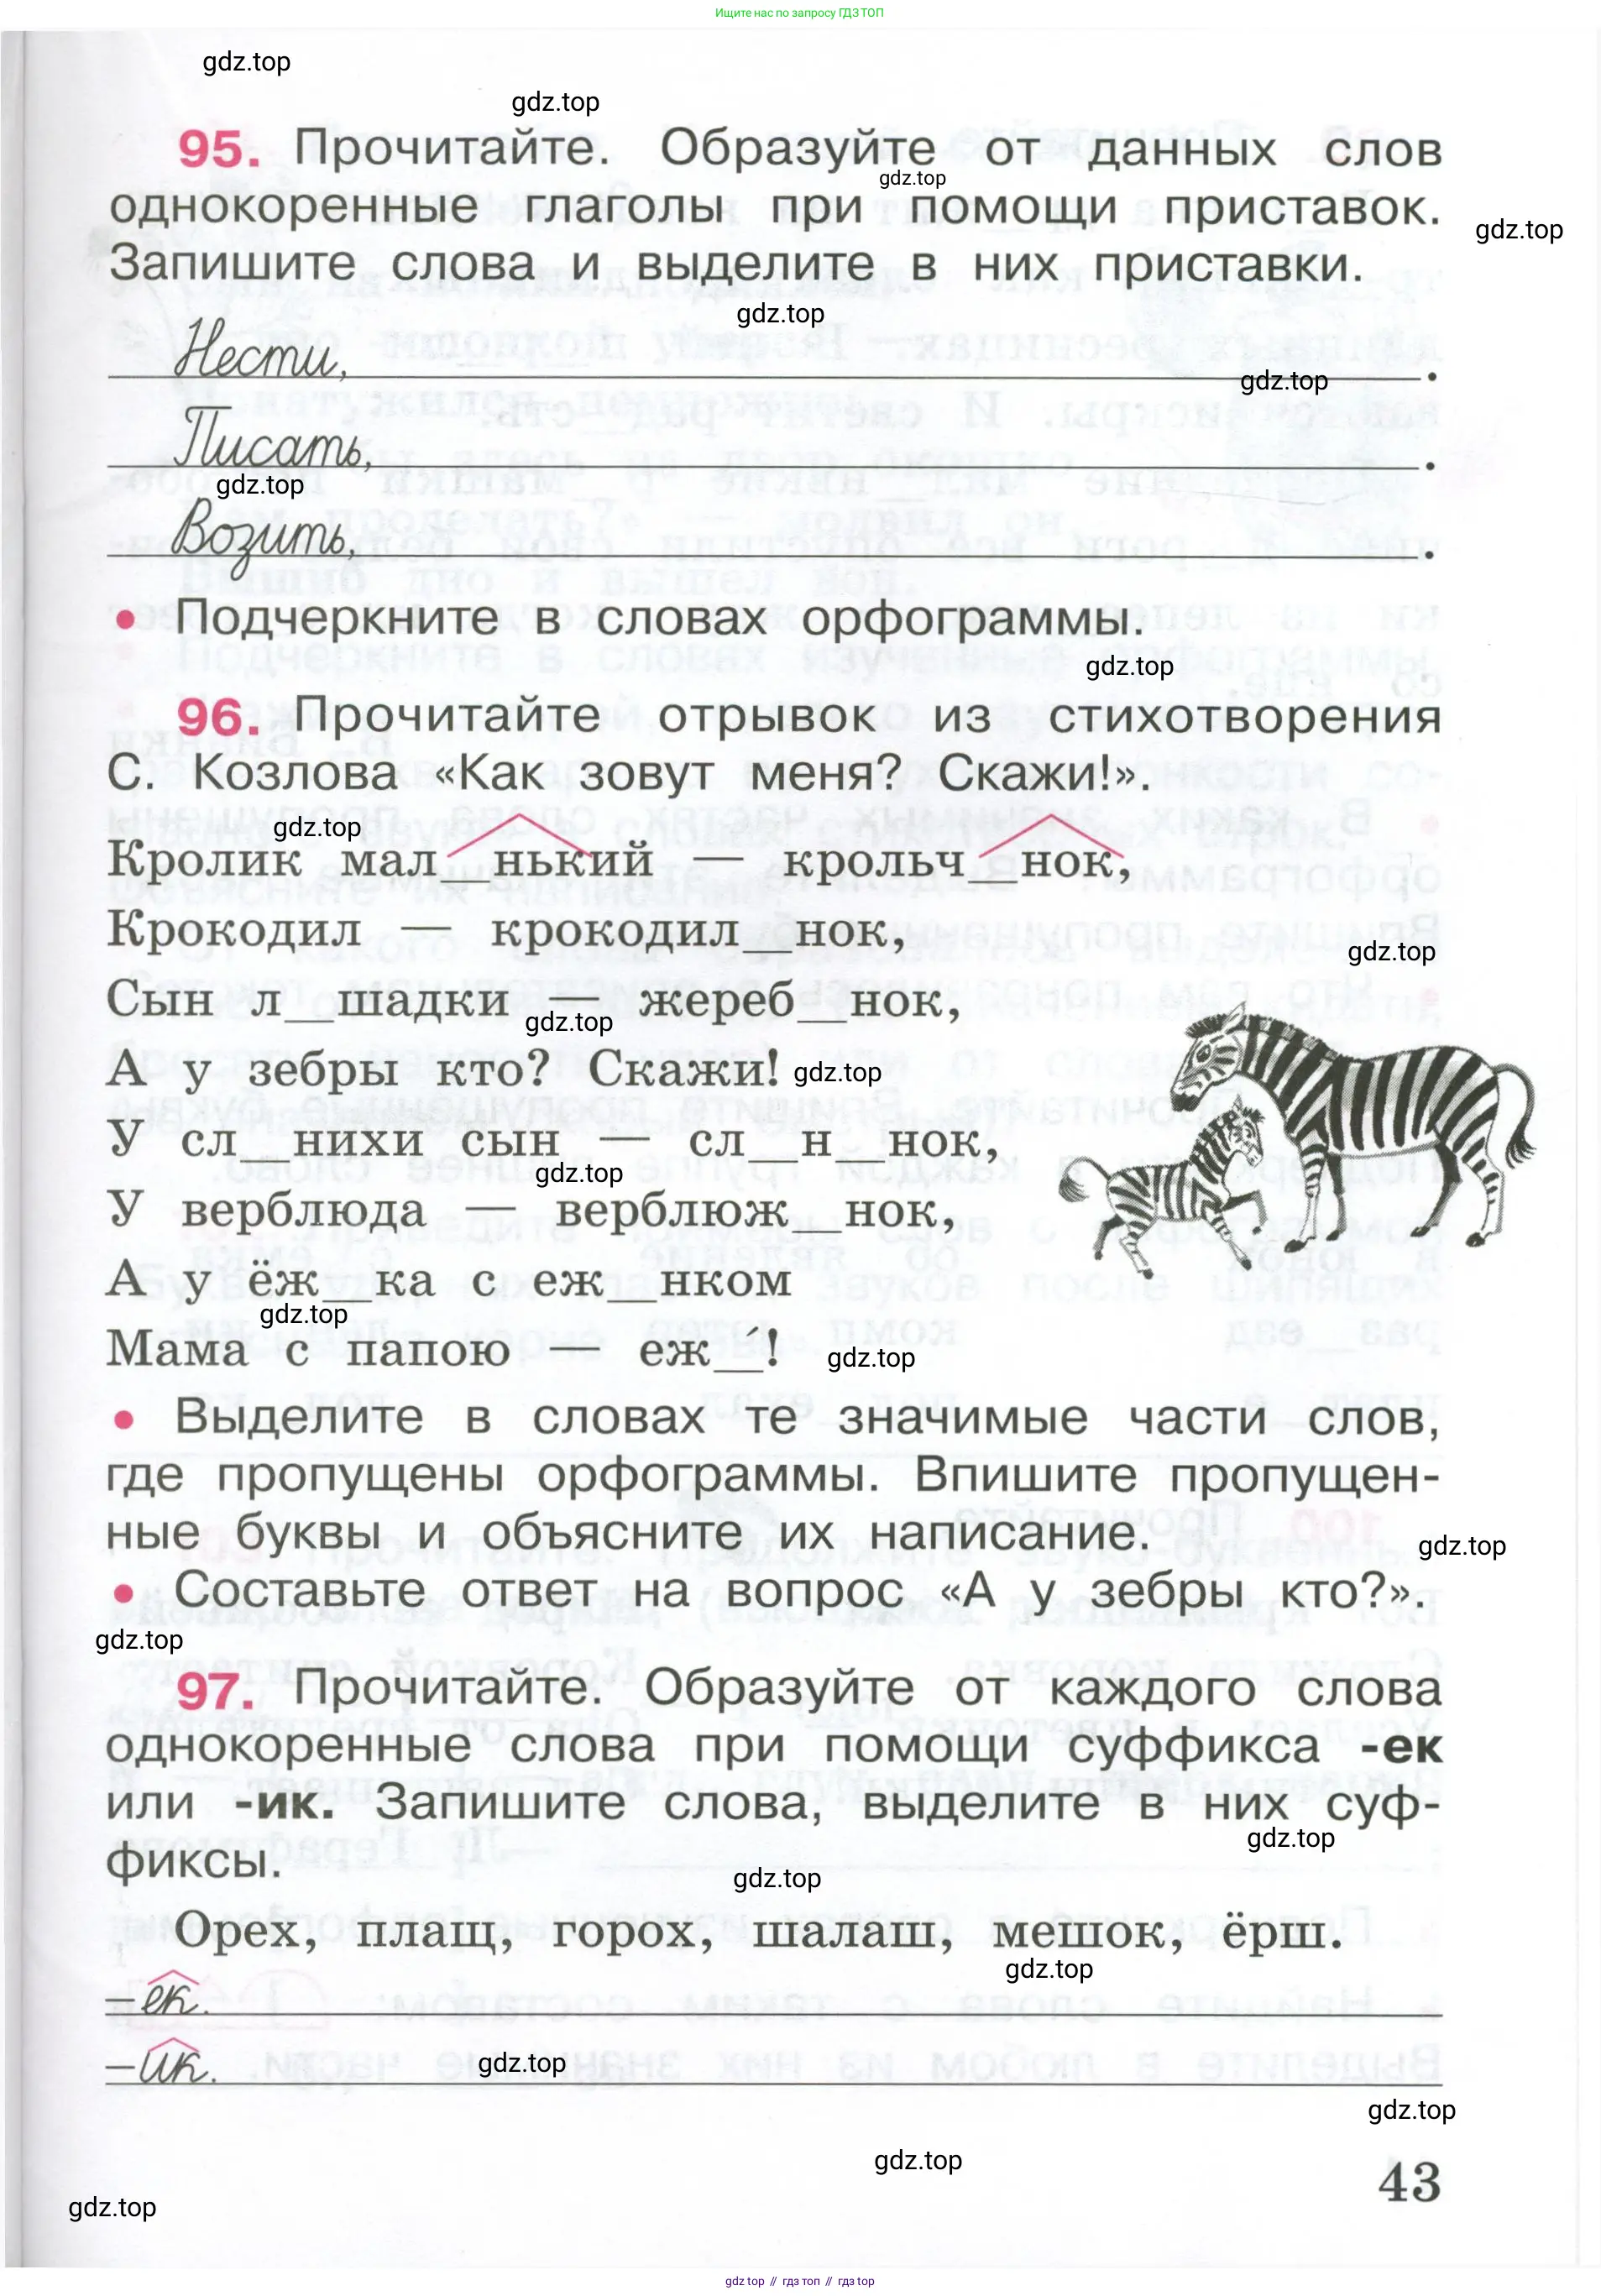 Ищите нас по запросу ГДЗ ТОП
gdz.top
gdz.top
95. Прочитайте. Образуйте от данных слов
gdz.top
однокоренные глаголы при помощи приставок.
gdz.top
Запишите слова и выделите в них приставки.
gdz.top
Нести, .
gdz.top
Писать, .
gdz.top
Возить, .
• Подчеркните в словах орфограммы.
gdz.top
96. Прочитайте отрывок из стихотворения
С. Козлова «Как зовут меня? Скажи!».
gdz.top
Кролик мал__нький — крольч__нок,
Крокодил — крокодил__нок,
gdz.top
Сын л__шадки — жереб__нок,
gdz.top
А у зебры кто? Скажи! gdz.top
У сл__нихи сын — сл__н__нок,
gdz.top
У верблюда — верблюж__нок,
А у ёж__ка с еж__нком
gdz.top
Мама с папою — еж__́! gdz.top
• Выделите в словах те значимые части слов,
где пропущены орфограммы. Впишите пропущен-
ные буквы и объясните их написание.
gdz.top
• Составьте ответ на вопрос «А у зебры кто?».
gdz.top
97. Прочитайте. Образуйте от каждого слова
однокоренные слова при помощи суффикса -ек
или -ик. Запишите слова, выделите в них суф-
gdz.top
фиксы.
gdz.top
Орех, плащ, горох, шалаш, мешок, ёрш.
gdz.top
-ек.
-ик. gdz.top
gdz.top
gdz.top
43
gdz.top
gdz top // гдз топ // гдз top